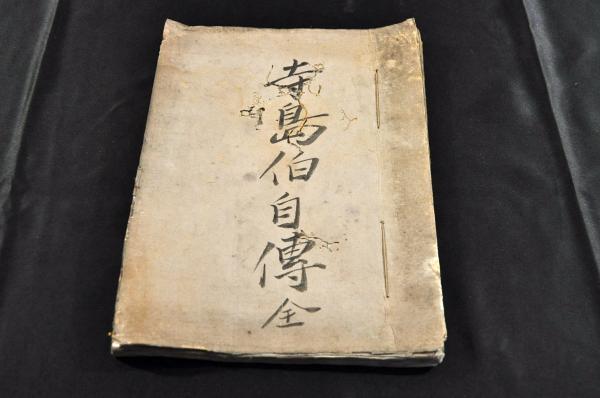 寺島伯自傳全